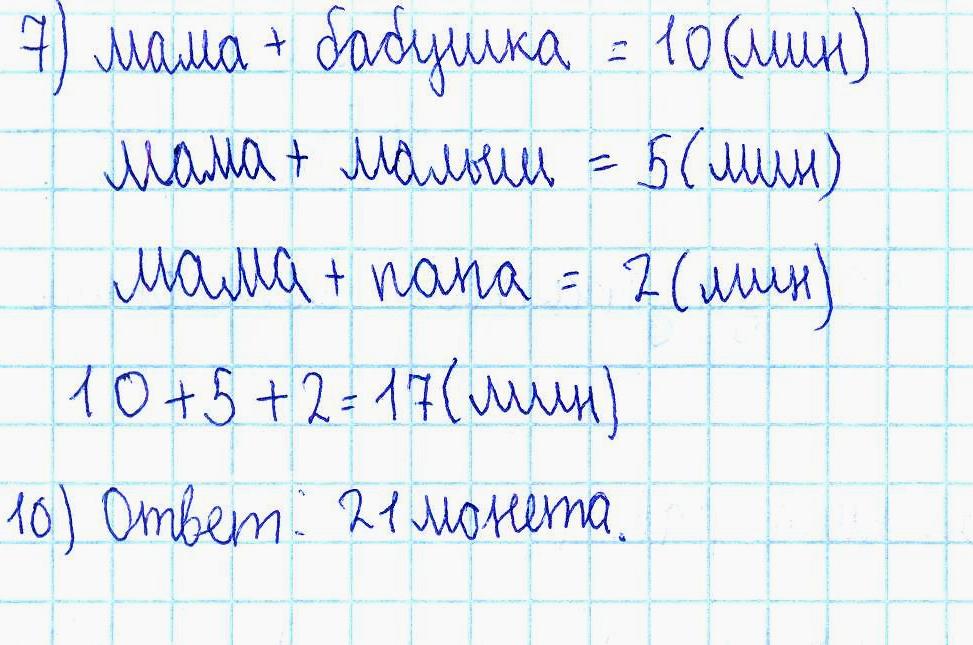 7) мама + бабушка = 10 (мин)
мама + малыш = 5 (мин)
мама + папа = 2 (мин)
10 + 5 + 2 = 17 (мин)
10) Ответ: 21 монета.